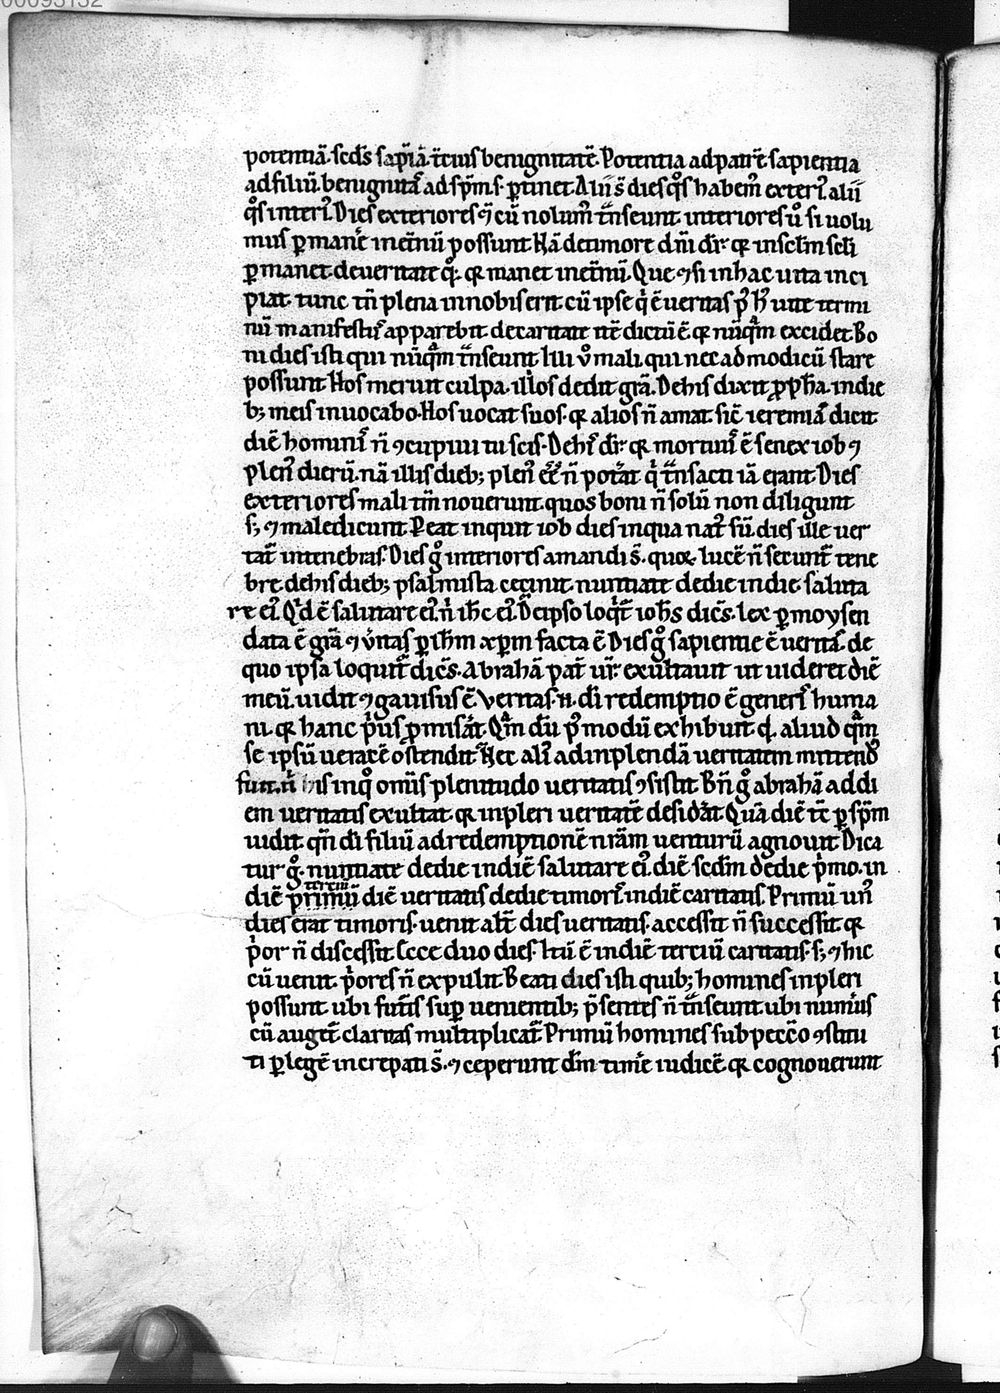 potentiā. scd̄s sap̄iā. t̄cius benignitatē. Potentia ad patr̄t sapientia
ad filiū. benignitā ad sp̄m s̄. ꝑtinet. Alii s̄ dies qͦs habem᷒ exteri᷒. alii
qͦs interi᷒. Dies exteriores ꝗ cū nolum᷒ t̄nseunt interiores u᷒o si uolu
mus ꝑmane᷒ inet̄nū possunt Nā de timore dn̄i dr̄. qꝛ in sclm̄ scli
ꝑmanet. de ueritate qͦꝫ. qꝛ manet inet̄nū. Que ⁊ si in hac uita inci
piat. tunc tn̄ plena in nobis erit. cū ipse qi ē ueritas p᷒ h᷒ uite termi
nū manifesti᷒ apparebit. de caritate u᷒e dictū ē. qꝛ nūqͣm excidet. Bo
ni dies isti qui nūqͣm t̄nseunt. Illi u᷒o mali. qui nec ad modicū stare
possunt Hos meruit culpa. illos dedit gr̄a. De his dixit ꝓph̄a. in die
bꝫ meis inuocabo. Hos uocat suos. qꝛ alios n̄ amat. sic̄ ieremias dicit.
diē homini᷒ n̄ ꝯcupiui tu scis. De hi᷒ dr̄. qꝛ mortuu᷒ ē senex iob ⁊
plen᷒ dierū. nā illis diebꝫ plen᷒ ēē n̄ potāt qi t̄nsacti iā erant. Dies
exteriores mali tm̄ nouerunt. quos boni n̄ solū non diligunt
sꝫ ⁊ maledicunt. Peat inquit iob dies in qua nat᷒ sū. dies ille uer
tat᷒ in tenebras. Dies gͦ interiores amandi s̄. quoꝝ lucē n̄ secunt᷒ tene
bre. de his diebꝫ psalmista cecinit. nuntiate de die in die saluta
re ei᷒. Qͥd ē salutare ei᷒. n̄ ih̄c ei᷒. De ipso loqit᷒ ioh̄s dic̄s. lex ꝑ moysen
data ē gr̄a ⁊ u᷒itas ꝑ ih̄m xp̄m facta ē Dies gͦ sapientie ē ueritas. de
quo ipsa loquit᷒ dic̄s. Abrahā pat᷒ ur̄. exultauit ut uideret diē
meū. uidit ⁊ gauisus ē. Veritas. n̄. di᷒ redemptio ē generi᷒ huma
ni. qꝛ hanc p᷒ius ꝓmisāt. Qm̄ dū p᷒ modū exhibuit qd᷒ aliud qͣm
se ipsū ueracē ostendit. Nec ali᷒ ad inplendā ueritatem mittend᷒
fuit. n̄ is in qͦ omīs plenitudo ueritatis ꝯsistit Bn̄ gͦ abrahā ad di
em ueritatis exultat. qꝛ inpleri ueritatē desidāt. Quā diē tc̄ ꝑ sp̄m
uidit. qn̄ di᷒ filiū ad redemptionē nr̄am uenturū agnouit. Dica
tur gͦ. nuntiate de die in diē salutare ei᷒. diē scdm̄ de die p᷒mo. in
diē primū diē ueritatis de die timori᷒. in diē caritatis. Primū un᷒
terciū
dies erat timoris. uenit alt᷒ dies ueritatis. accessit n̄ successit. qꝛ
p᷒or n̄ discessit. Ecce duo dies. Itū ē in diē terciū caritatis. sꝫ ⁊ hic
cū uenit p᷒ores n̄ expulit. Beati dies isti quibꝫ homines inpleri
possunt ubi fut᷒is sup ueuientibꝫ p̄sentes n̄ t̄nseunt. ubi numi᷒us
cū auget᷒. claritas multiplicat᷒. Primū homines sub pecc̄o ꝯstitu
ti ꝑ legē increpati s̄. ⁊ ceperunt dm̄ timē᷒ iudicē. qꝛ cognouerunt